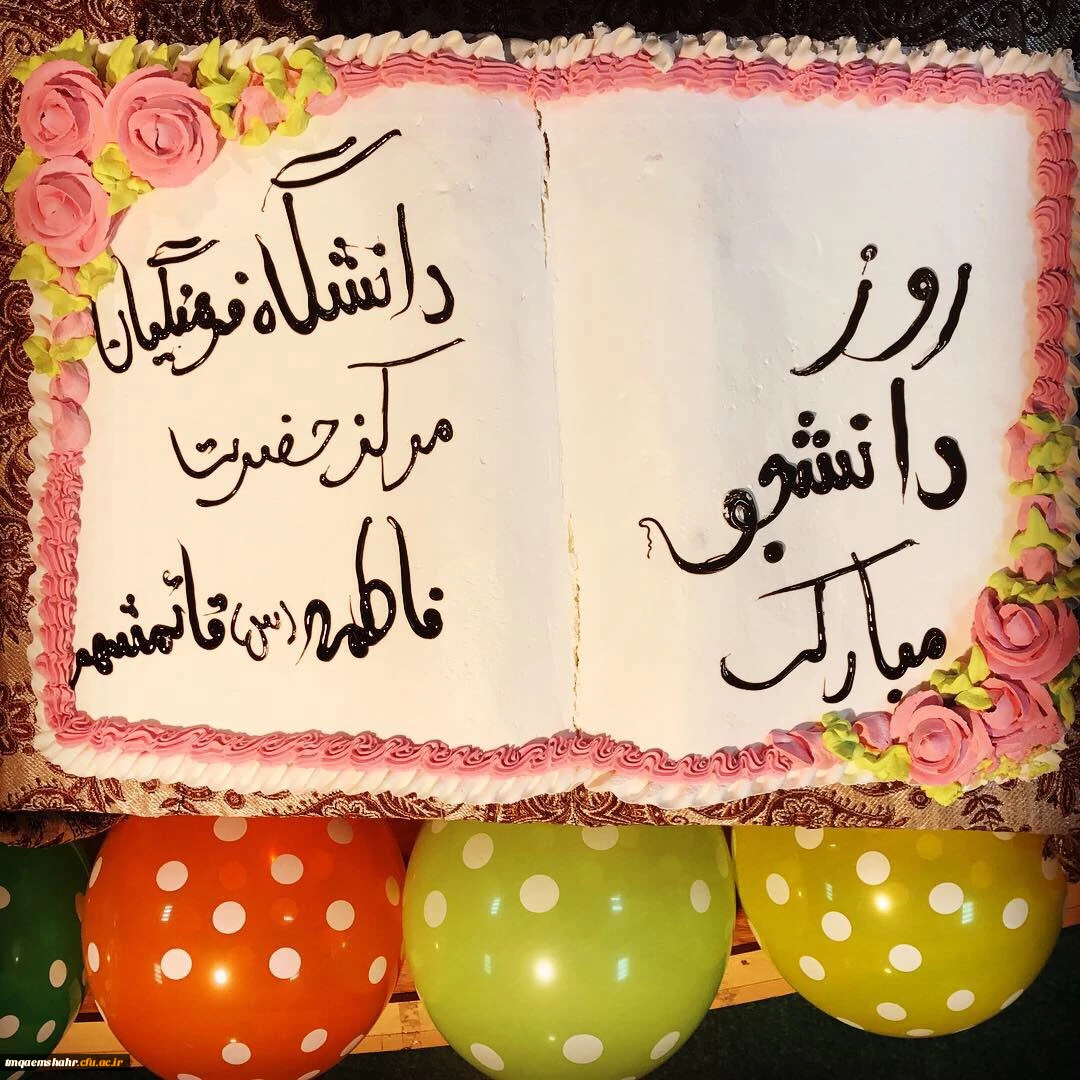 روز
دانشجو
مبارک
دانشگاه فرهنگیان
مرکز حضرت
فاطمه (س) قائمشهر
tmqaemshahr.cfu.ac.ir